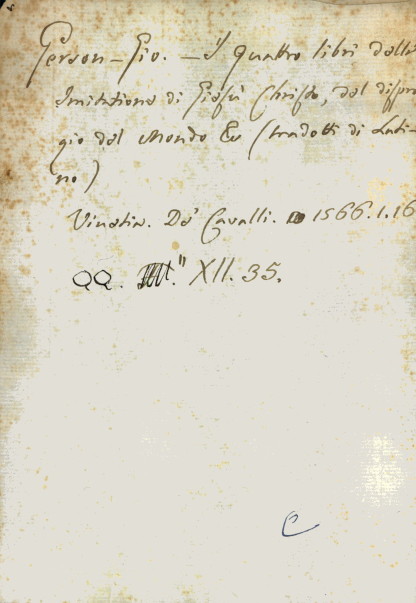 Gerson - Gio. - I quattro libri della
Imitatione di Giesù Christo, del dispre
gio del Mondo Ec (tradotti di Lati-
no)
Vinetia. De' Cavalli. 1566.1.16
QQ. XII. 35.
C